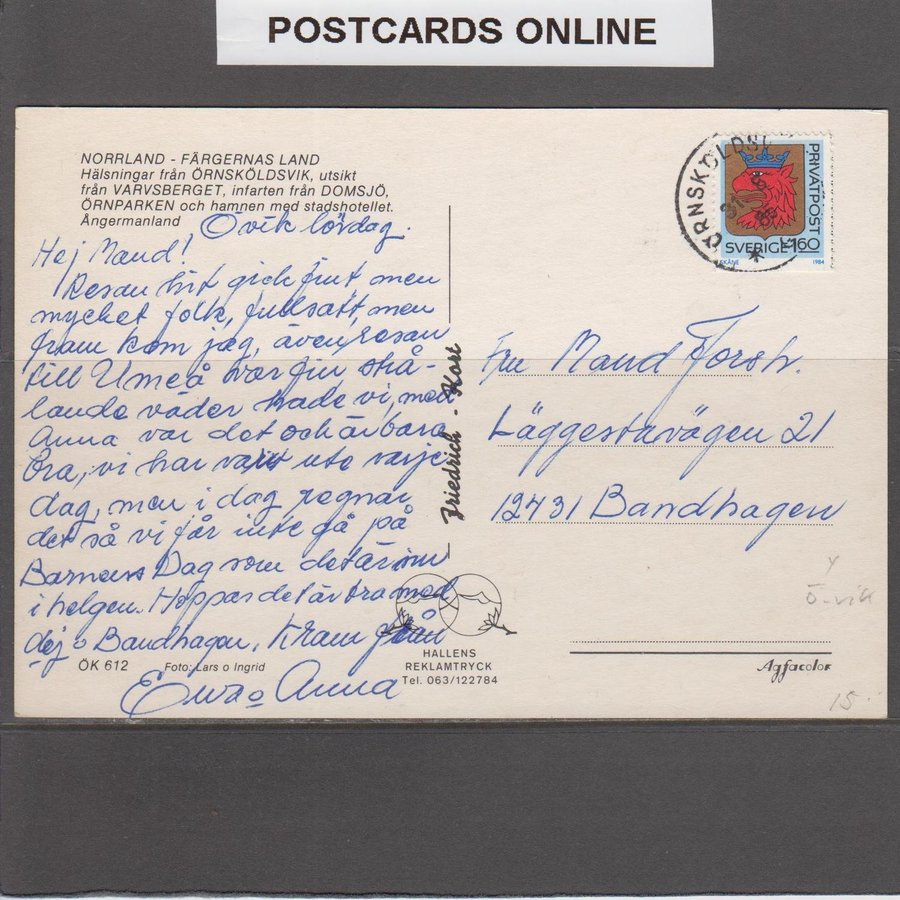 POSTCARDS ONLINE
NORRLAND - FÄRGERNAS LAND
Hälsningar från ÖRNSKÖLDSVIK, utsikt
från VARVSBERGET, infarten från DOMSJÖ,
ÖRNPARKEN och hamnen med stadshotellet.
Ångermanland
Övik lördag.
Hej Maud!
Resan hit gick fint, men
mycket folk, fullsatt, men
fram kom jag, även resan
till Umeå var fin strå-
lande väder hade vi, med
Anna var det och är bara
bra, vi har varit ute varje
dag, men i dag regnar
det så vi får inte gå på
Barnens Dag som det är nu
i helgen. Hoppas det är bra med
dej o Bandhagen, Kram från
o Anna
ÖK 612
Foto: Lars o Ingrid
Friedrich - Kort
HALLENS
REKLAMTRYCK
Tel. 063/122784
ÖRNSKÖLDSV
31
PRIVATPOST
SVERIGE 1.60
SKÅNE
1984
Fru Maud Forstr.
Läggestavägen 21
12431 Bandhagen
Y
Ö-vik
Agfacolor
15